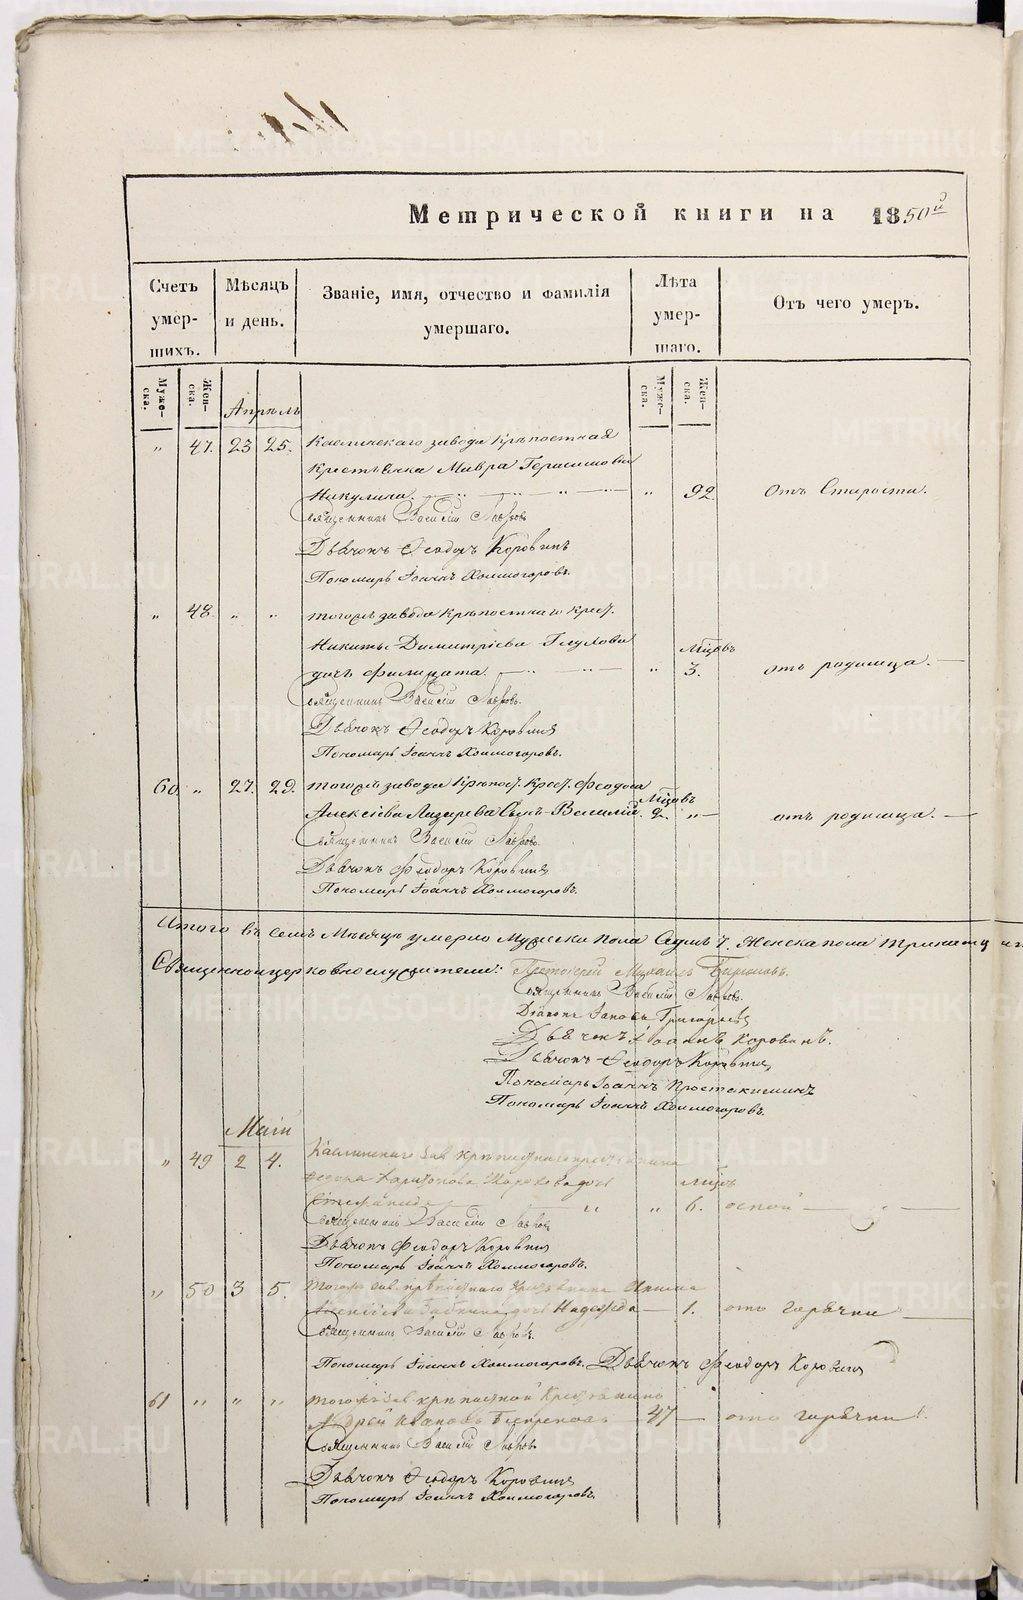 Метрической книги на 1850й
Счетъ умер-шихъ.
Мѣсяцъ и день.
Званіе, имя, отчество и фамилія умершаго.
Лѣта умер-шаго.
Отъ чего умеръ.
Муже-ска.
Жен-ска.
Муже-ска.
Жен-ска.
Апрѣль
„ 47. 23 25. Каслинскаго завода крѣпостная
крестьянка Мавра Герасимова
Никулина. „ 92. Отъ Старости.
Священникъ Василій Лавровъ
Дьячокъ Ѳеодоръ Коровинъ
Пономарь Іоаннъ Холмогоровъ.
„ 48. „ „ тогожъ завода крѣпостнаго крест.
Никиты Димитріева Глухова Мѣсцовъ
дочь Филицата. „ 3. отъ родимца.
Священникъ Василій Лавровъ.
Дьячокъ Ѳеодоръ Коровинъ
Пономарь Іоаннъ Холмогоровъ.
60. „ 27. 29. тогожъ завода крѣпост. крест. Ѳеодора
Алексіева Лазарева сынъ Василій. Мѣсцовъ 2. „ отъ родимца.
Священникъ Василій Лавровъ.
Дьячокъ Ѳеодоръ Коровинъ
Пономарь Іоаннъ Холмогоровъ.
Итого въ семъ Мѣсяцѣ умерло Мужеска пола Женска пола
Священноцерковнослужители: Протоіерей Михаилъ
Священникъ Василій Лавровъ.
Діаконъ Іаковъ Григорьевъ
Дьячекъ Іоаннъ Коровинъ.
Дьячокъ Ѳеодоръ Коровинъ
Пономарь Іоаннъ Простокишинъ
Пономарь Іоаннъ Холмогоровъ.
Маій
„ 49 2 4. Каслинскаго зав. крѣпостнаго крестьянина
Федора Харитонова дочь Мѣсц.
Стефанида „ „ 6. оспой
Священникъ Василій Лавровъ
Дьячокъ Ѳеодоръ Коровинъ
Пономарь Іоаннъ Холмогоровъ.
„ 50 3 5. тогожъ зав. крѣпостнаго крестьянина
дочь Надежда 1. отъ горячки
Священникъ Василій Лавровъ.
Пономарь Іоаннъ Холмогоровъ. Дьячокъ Ѳеодоръ Коровинъ
61 „ „ „ тогожъ зав. крѣпостной Крестьянинъ
Андрей Ивановъ 47 отъ горячки.
Священникъ Василій Лавровъ
Дьячокъ Ѳеодоръ Коровинъ
Пономарь Іоаннъ Холмогоровъ.
METRIKI.GASO-URAL.RU